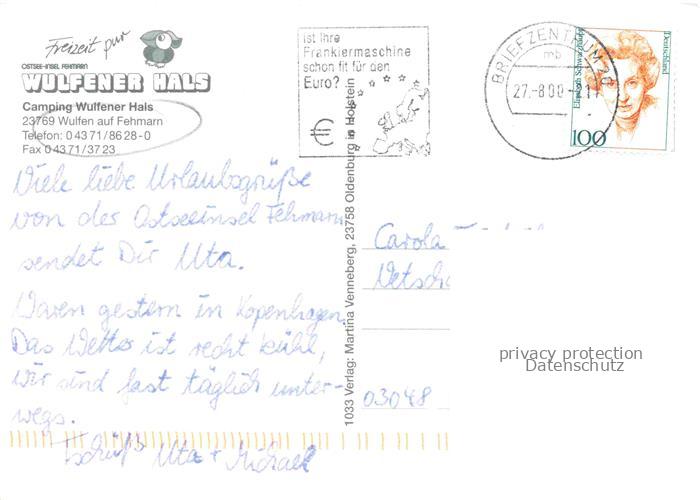 Freizeit pur
OSTSEE-INSEL FEHMARN
WULFENER HALS
Camping Wulfener Hals
23769 Wulfen auf Fehmarn
Telefon: 0 43 71 / 86 28 - 0
Fax 0 43 71 / 37 23
Ist Ihre
Frankiermaschine
schon fit für den
Euro?
€
BRIEFZENTRUM 20
mb
27.-8.00-21
Elisabeth Schwarzhaupt
Deutschland
100
Viele liebe Urlaubsgrüße
von der Ostseeinsel Fehmarn
sendet Dir Uta.
Waren gestern in Kopenhagen.
Das Wetter ist recht kühl,
wir sind fast täglich unter-
wegs.
Tschüß Uta + Michael
1033 Verlag: Martina Venneberg, 23758 Oldenburg in Holstein
Carola
03048
privacy protection
Datenschutz